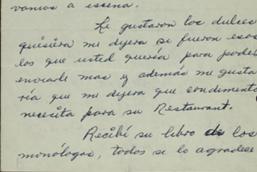 vamos a escena.
Le gustaron los dulces
quisiera me dijera si fueron esos
los que usted quería para poder
enviarle mas y además me gusta
ría que me dijera que condimento
necesita para su Restaurant.
Recibí su libro de los
monólogos, todos se lo agradece